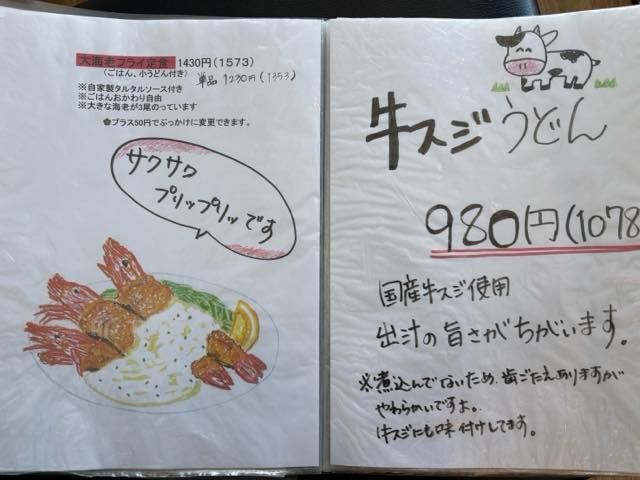 大海老フライ定食 1430円(1573)
(ごはん、小うどん付き) 単品1230円(1353)
※自家製タルタルソース付き
※ごはんおかわり自由
※大きな海老が3尾のっています
✿プラス50円でぶっかけに変更できます。
サクサク
プリップリッです
牛スジうどん
980円(1078
国産牛スジ使用
出汁の旨さがちがいます。
※煮込んでないため、歯ごたえありますが
やわらかいですよ。
牛スジにも味付けしてます。